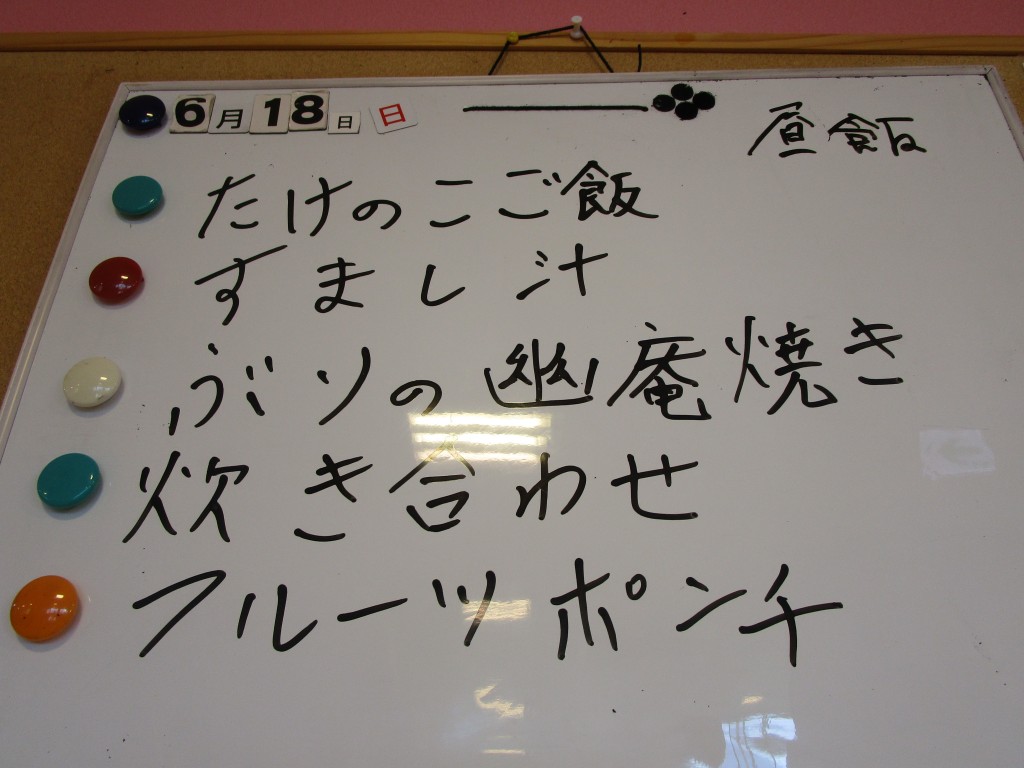 6月18日 日
昼飯
たけのこご飯
すまし汁
ぶりの幽庵焼き
炊き合わせ
フルーツポンチ